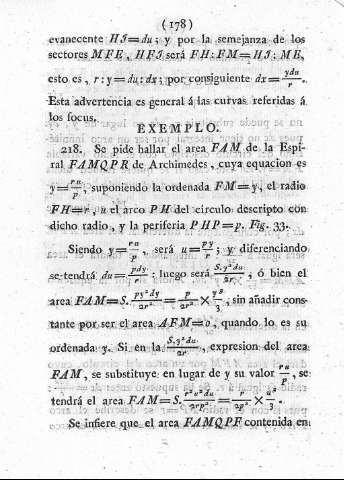 ( 178 )
evanecente HI=du; y por la semejanza de los
sectores MFE, HFI será FH:FM=HI:ME,
esto es, r:y=du:dx; por consiguiente dx=ydu/r.
Esta advertencia es general á las curvas referidas á
los focus.
EXEMPLO.
218. Se pide hallar el area FAM de la Espi-
ral FAMQPR de Archimedes, cuya equacion es
y=ru/p, suponiendo la ordenada FM=y, el radio
FH=r, u el arco PH del circulo descripto con
dicho radio, y la periferia PHP=p. Fig. 33.
Siendo y=ru/p, será u=py/r; y diferenciando
se tendrá du=pdy/r: luego será S.y²du/2r, ó bien el
area FAM=S.py²dy/2r²=p/2r²×y³/3, sin añadir cons-
tante por ser el area AFM=0, quando lo es su
ordenada y. Si en la S.y²du/2r, expresion del area
FAM, se substituye en lugar de y su valor ru/p, se
tendrá el area FAM=S.r²u²du/2rp²=r/2p²×u³/3.
Se infiere que el area FAMQPF contenida en